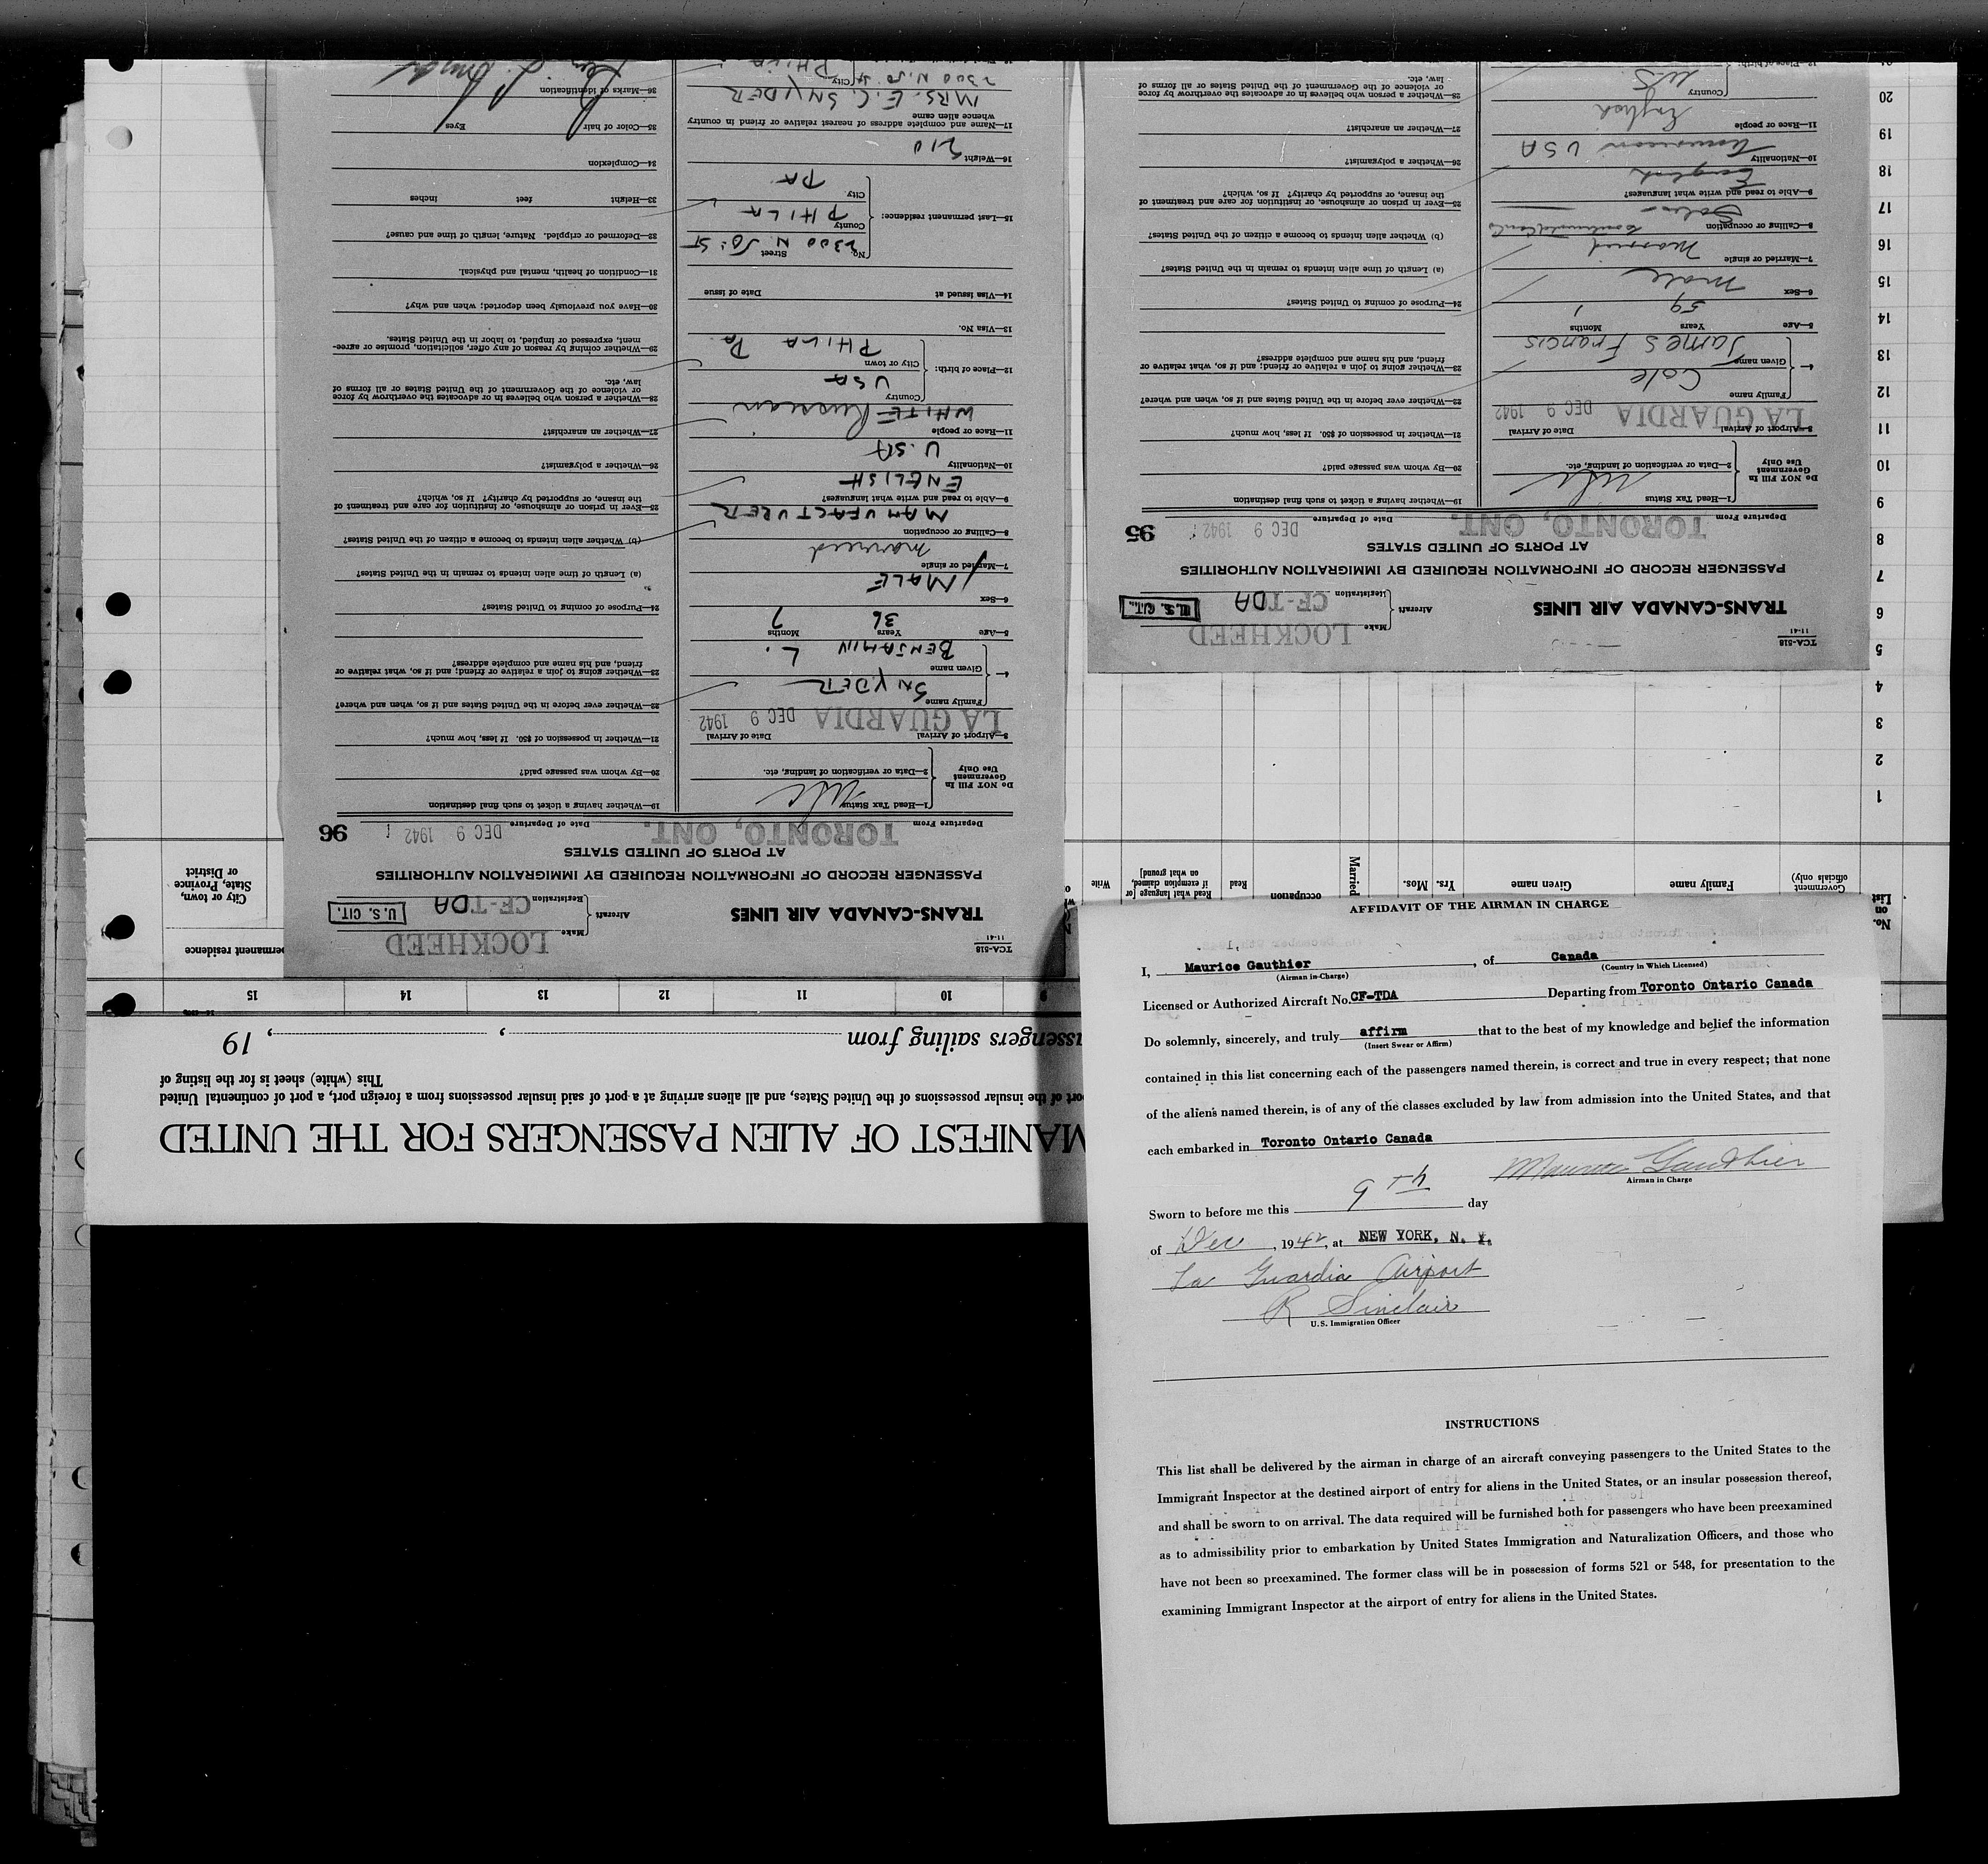 AFFIDAVIT OF THE AIRMAN IN CHARGE
I, Maurice Gauthier, of Canada
(Airman in Charge) (Country in Which Licensed)
Licensed or Authorized Aircraft No. CF-TDA Departing from Toronto Ontario Canada
Do solemnly, sincerely, and truly affirm that to the best of my knowledge and belief the information
(Insert Swear or Affirm)
contained in this list concerning each of the passengers named therein, is correct and true in every respect; that none
of the aliens named therein, is of any of the classes excluded by law from admission into the United States, and that
each embarked in Toronto Ontario Canada
Maurice Gauthier
Airman in Charge
Sworn to before me this 9th day
of Dec, 1942, at NEW YORK, N. Y.
La Guardia Airport
R Sinclair
U.S. Immigration Officer
INSTRUCTIONS
This list shall be delivered by the airman in charge of an aircraft conveying passengers to the United States to the
Immigrant Inspector at the destined airport of entry for aliens in the United States, or an insular possession thereof,
and shall be sworn to on arrival. The data required will be furnished both for passengers who have been preexamined
as to admissibility prior to embarkation by United States Immigration and Naturalization Officers, and those who
have not been so preexamined. The former class will be in possession of forms 521 or 548, for presentation to the
examining Immigrant Inspector at the airport of entry for aliens in the United States.
MANIFEST OF ALIEN PASSENGERS FOR THE UNITED
port of the insular possessions of the United States, and all aliens arriving at a port of said insular possessions from a foreign port, a port of continental United
This (white) sheet is for the listing of
passengers sailing from , , 19
9 10 11 12 13 14 15
No. on List
Government officials only)
Family name
Given name
Yrs. Mos.
Married
occupation
Read
Read what language [or if exemption claimed, on what ground]
Write
permanent residence
City or town, State, Province or District
1
2
3
4
5
6
7
8
9
10
11
12
13
14
15
16
17
18
19
20
TCA-518
11-41
TRANS-CANADA AIR LINES
Aircraft
Make LOCKHEED
Registration CF-TDA
U. S. CIT.
PASSENGER RECORD OF INFORMATION REQUIRED BY IMMIGRATION AUTHORITIES
AT PORTS OF UNITED STATES
95
Departure From TORONTO, ONT. Date of Departure DEC 9 1942
Do NOT Fill In Government Use Only
1—Head Tax Status
2—Data or verification of landing, etc.
3—Airport of Arrival LA GUARDIA Date of Arrival DEC 9 1942
4— Family name Cole
Given name James Francis
5—Age Years 59 Months 1
6—Sex male
7—Married or single Married
8—Calling or occupation
9—Able to read and write what languages? English
10—Nationality American USA
11—Race or people English
12—Place of birth: Country U.S.
19—Whether having a ticket to such final destination
20—By whom was passage paid?
21—Whether in possession of $50. If less, how much?
22—Whether ever before in the United States and if so, when and where?
23—Whether going to join a relative or friend; and if so, what relative or
friend, and his name and complete address?
24—Purpose of coming to United States?
(a) Length of time alien intends to remain in the United States?
(b) Whether alien intends to become a citizen of the United States?
25—Ever in prison or almshouse, or institution for care and treatment of
the insane, or supported by charity? If so, which?
26—Whether a polygamist?
27—Whether an anarchist?
28—Whether a person who believes in or advocates the overthrow by force
or violence of the Government of the United States or all forms of
law, etc.
TCA-518
11-41
TRANS-CANADA AIR LINES
Aircraft
Make LOCKHEED
Registration CF-TDA
U. S. CIT.
PASSENGER RECORD OF INFORMATION REQUIRED BY IMMIGRATION AUTHORITIES
AT PORTS OF UNITED STATES
96
Departure From TORONTO, ONT. Date of Departure DEC 9 1942
Do NOT Fill In Government Use Only
1—Head Tax Status
2—Data or verification of landing, etc.
3—Airport of Arrival LA GUARDIA Date of Arrival DEC 9 1942
4— Family name SNYDER
Given name BENJAMIN L.
5—Age Years 36 Months 7
6—Sex MALE
7—Married or single married
8—Calling or occupation MANUFACTURER
9—Able to read and write what languages? ENGLISH
10—Nationality U.S.A
11—Race or people WHITE Russian
12—Place of birth: Country USA
City or town PHILA Pa.
13—Visa No.
14—Visa issued at Date of issue
15—Last permanent residence: No. 2300 N. 50. ST Street
County PHILA
City PA.
16—Weight 210
17—Name and complete address of nearest relative or friend in country
whence alien came
MRS. E. C. SNYDER
2300 N. 50. St City PHILA
19—Whether having a ticket to such final destination
20—By whom was passage paid?
21—Whether in possession of $50. If less, how much?
22—Whether ever before in the United States and if so, when and where?
23—Whether going to join a relative or friend; and if so, what relative or
friend, and his name and complete address?
24—Purpose of coming to United States?
(a) Length of time alien intends to remain in the United States?
(b) Whether alien intends to become a citizen of the United States?
25—Ever in prison or almshouse, or institution for care and treatment of
the insane, or supported by charity? If so, which?
26—Whether a polygamist?
27—Whether an anarchist?
28—Whether a person who believes in or advocates the overthrow by force
or violence of the Government of the United States or all forms of
law, etc.
29—Whether coming by reason of any offer, solicitation, promise or agree-
ment, expressed or implied, to labor in the United States.
30—Have you previously been deported; when and why?
31—Condition of health, mental and physical.
32—Deformed or crippled. Nature, length of time and cause?
33—Height feet inches
34—Complexion
35—Color of hair Eyes
36—Marks of identification